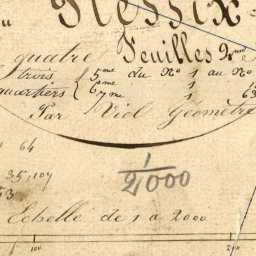 quatre Feuilles 2me
trois 5me du No 1 au No
quartiers 6me 1
7me 1 63
Par Viol Géomètre
64
35,107
53
1/2000
Echelle de 1 a 2000
100 200